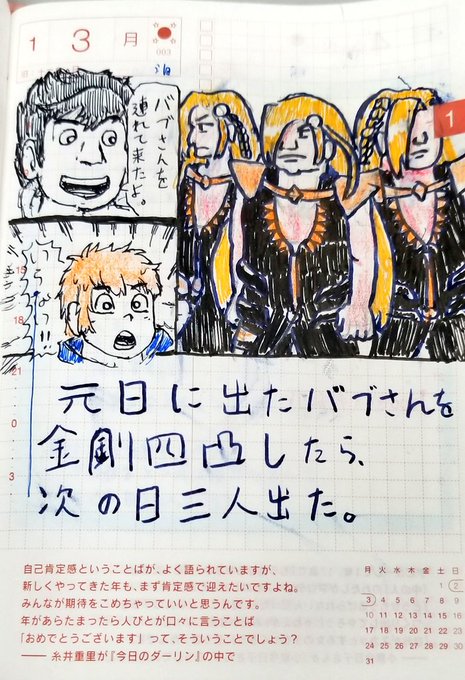 1 3 月
003
1
バブさんを
連れて来たよ。
15
18
21
0
3
元日に出たバブさんを
金剛四凸したら、
次の日三人出た。
自己肯定感ということばが、よく語られていますが、
新しくやってきた年も、まず肯定感で迎えたいですよね。
みんなが期待をこめちゃっていいと思うんです。
年があらたまったら人びとが口々に言うことば
「おめでとうございます」って、そういうことでしょう?
── 糸井重里が『今日のダーリン』の中で
月 火 水 木 金 土 日
1 2
3 4 5 6 7 8 9
10 11 12 13 14 15 16
17 18 19 20 21 22 23
24 25 26 27 28 29 30
31